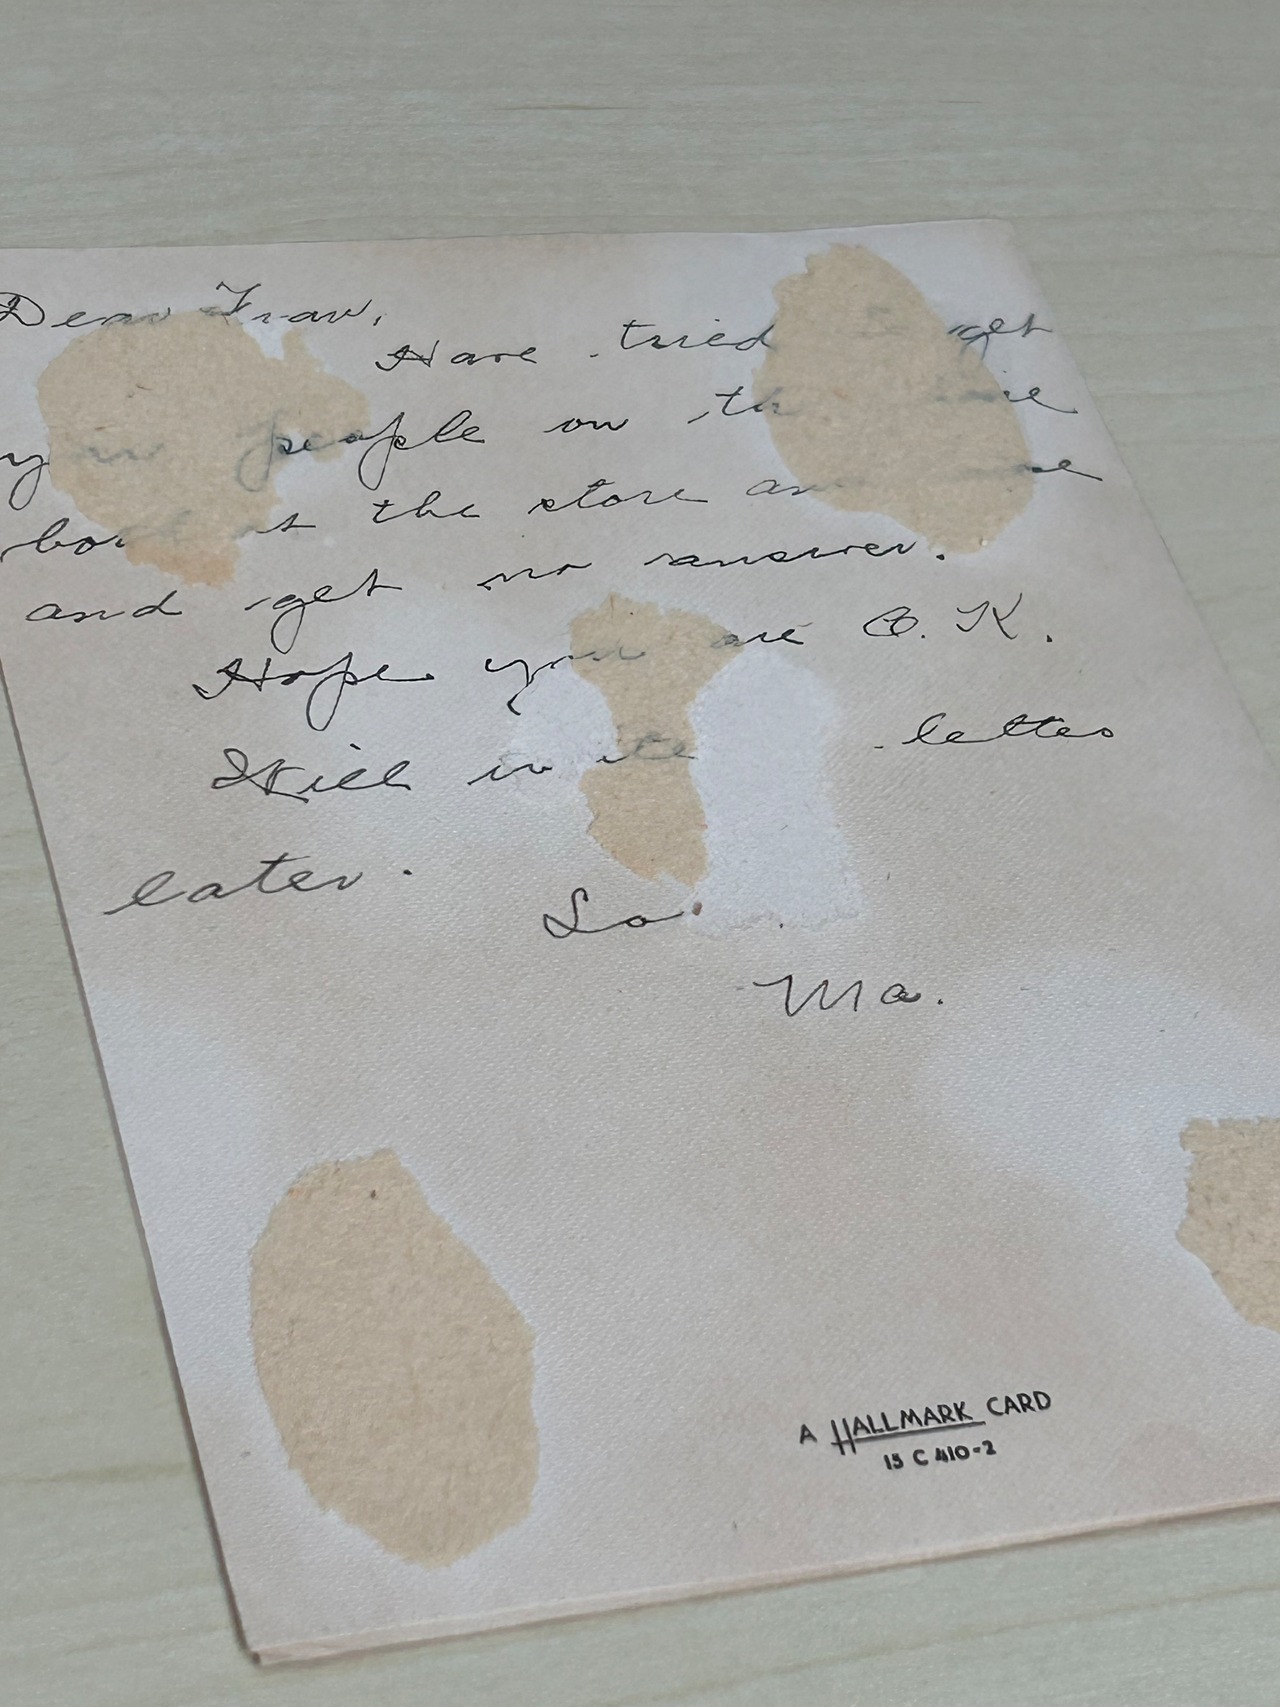 Dear Fran,
Have tried to get
you people on the
both at the store and
and get no answer.
Hope you are O.K.
Will write letter
later.
Ma.
A HALLMARK CARD
15 C 410-2